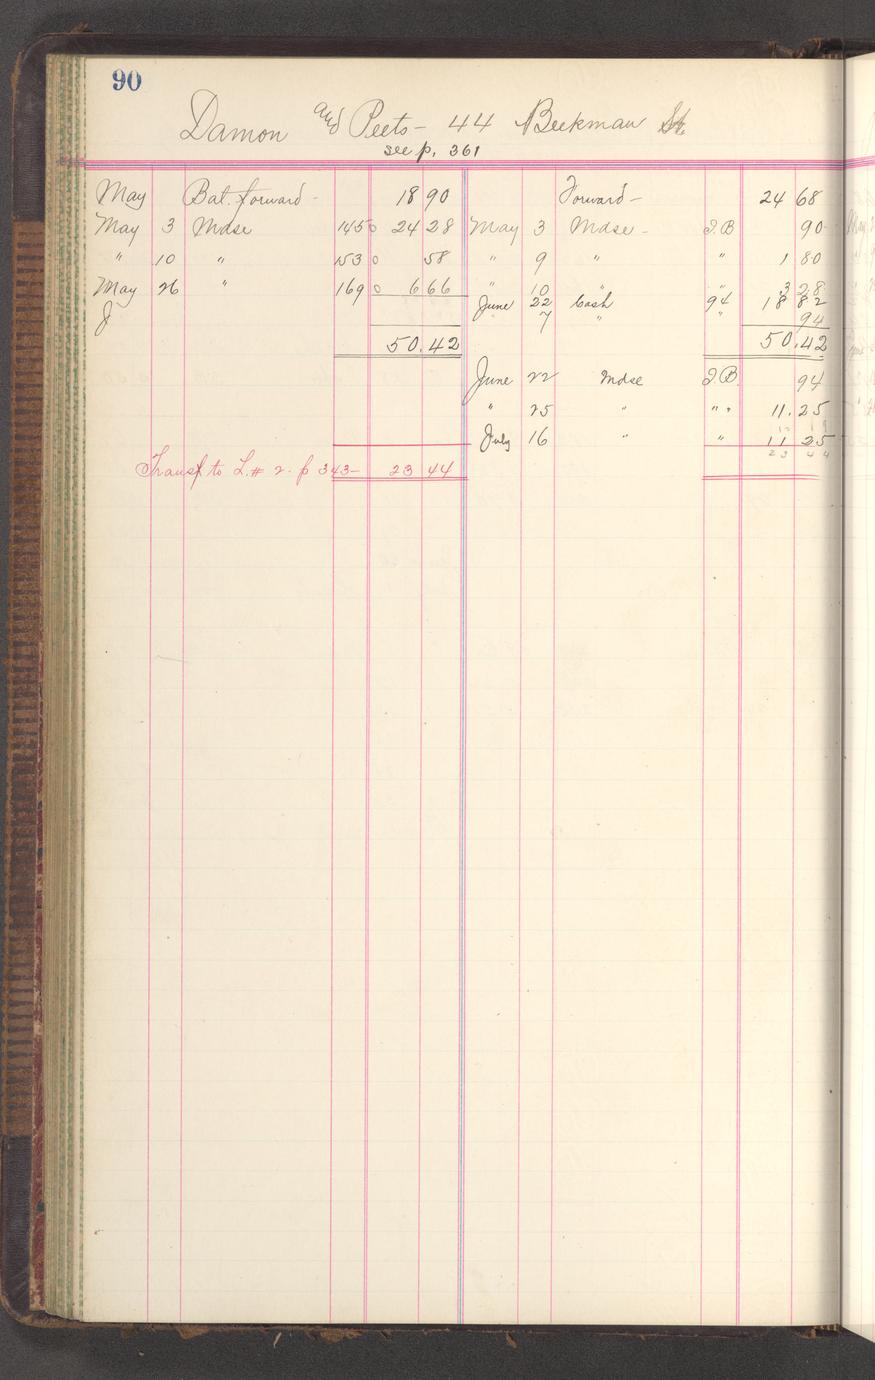 90
Damon and Peets - 44 Beekman St
see p. 361
May Bal. forward - 18 90 Forward - 24 68
May 3 Mdse 1450 24 28 May 3 Mdse - J.B 90
" 10 " 1530 58 " 9 " " 1 80
May 26 " 1690 6 66 " 10 " " 3 28
J June 22 Cash 94 18 82
" 7 " " 94
50.42 50.42
June 22 Mdse J.B. 94
" 25 " " " 11.25
July 16 " " 11 25
Transf to L. # 2. p 343- 23 44 23 44